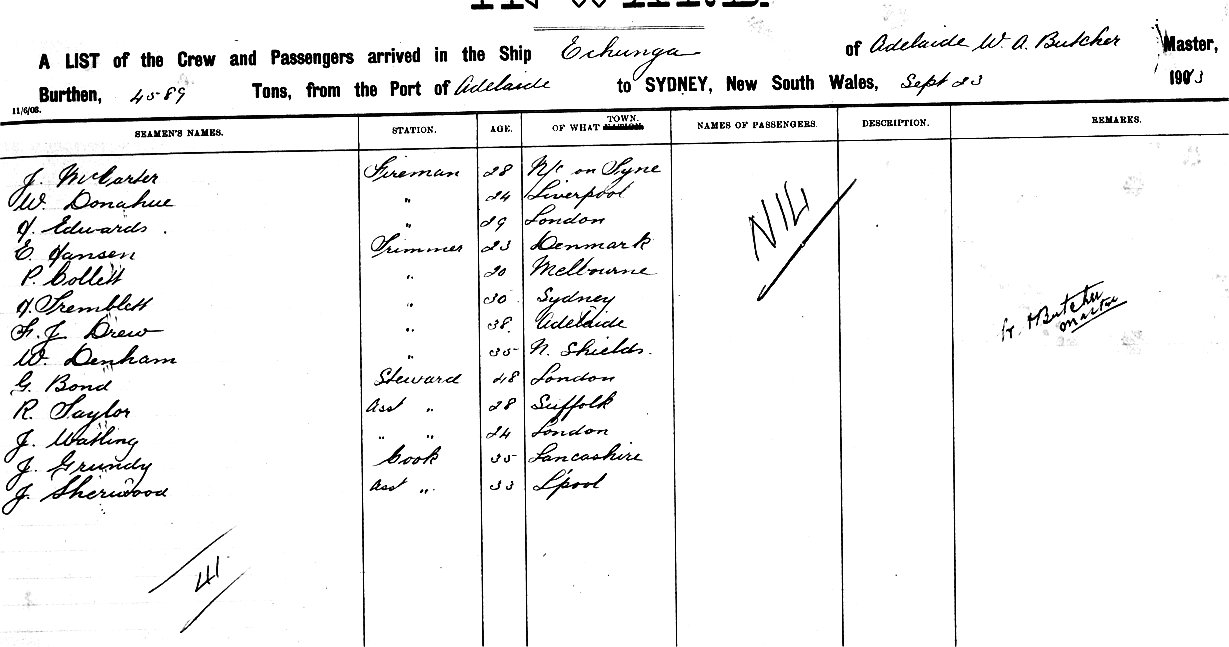 A LIST of the Crew and Passengers arrived in the Ship Echunga of Adelaide W. A. Butcher Master,
Burthen, 4589 Tons, from the Port of Adelaide to SYDNEY, New South Wales, Sept 23 1903
11/6/08.
SEAMEN'S NAMES. STATION. AGE. OF WHAT NATION. TOWN. NAMES OF PASSENGERS. DESCRIPTION. REMARKS.
J. McCarter Fireman 28 N/c on Tyne
W. Donahue " 24 Liverpool
H. Edwards . " 29 London
E. Hansen Trimmer 23 Denmark
P. Collett " 20 Melbourne
H. Tremblett " 30 Sydney
F. J. Drew " 38 Adelaide
W. Denham " 35 N. Shields.
G. Bond Steward 48 London
R. Taylor Asst " 28 Suffolk
J. Watling " " 24 London
J. Grundy Cook 35 Lancashire
J. Sherwood Asst " 33 L'pool
NIL
Butcher
Master
41